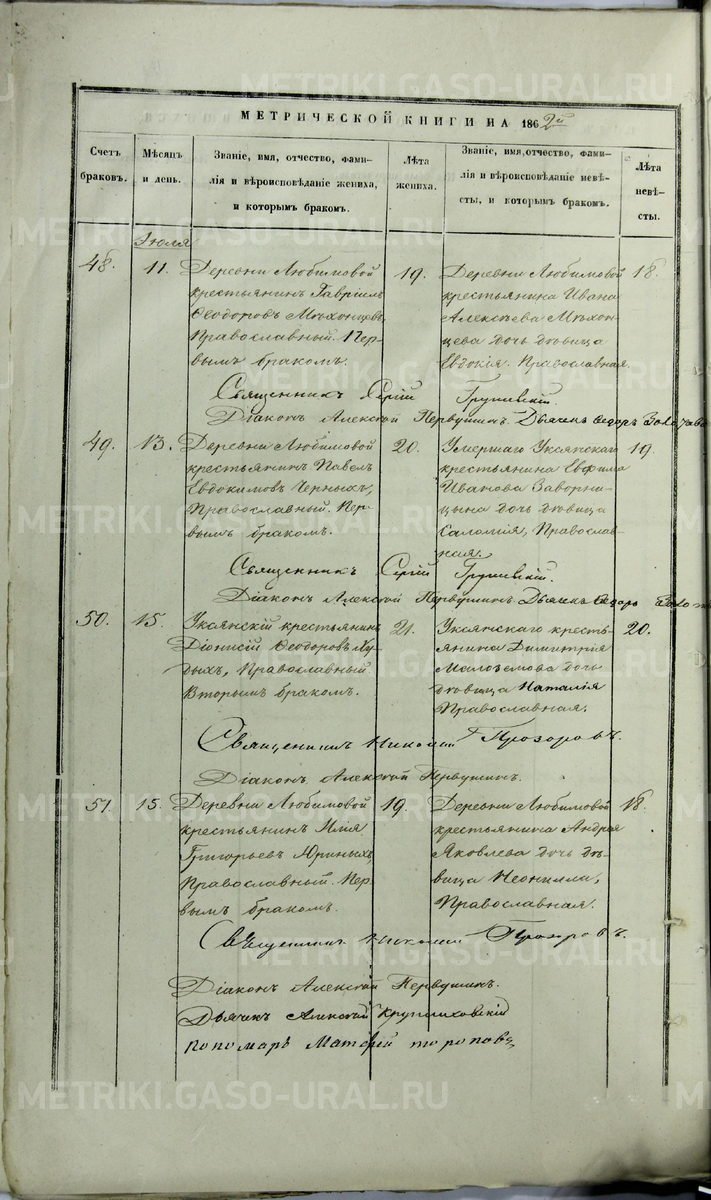 МЕТРИЧЕСКОЙ КНИГИ НА 1862й
Счетъ браковъ.
Мѣсяцъ и день.
Званіе, имя, отчество, фами-
лія и вѣроисповѣданіе жениха,
и которымъ бракомъ.
Лѣта жениха.
Званіе, имя, отчество, фами-
лія и вѣроисповѣданіе невѣ-
сты, и которымъ бракомъ.
Лѣта невѣ-
сты.
Іюля
48.
11.
Деревни Любимовой
крестьянинъ Гавріилъ
Ѳеодоровъ Мѣхонцевъ,
Православный. Пер-
вымъ бракомъ.
19.
Деревни Любимовой
крестьянина Ивана
Алексѣева Мѣхон-
цева дочь дѣвица
Евдокія. Православная.
18.
Священникъ Сергій
Діаконъ Алексѣй Первушинъ. Дьячекъ Ѳедоръ
49.
13.
Деревни Любимовой
крестьянинъ Павелъ
Евдокимовъ Черныхъ,
Православный. Пер-
вымъ бракомъ.
20.
Умершаго Уксянскаго
крестьянина Евфима
Иванова Заворни-
цына дочь дѣвица
Саломія, Православ-
ная.
19.
Священникъ Сергій
Діаконъ Алексѣй Первушинъ. Дьячекъ Ѳедоръ
50.
15.
Уксянскій крестьянинъ
Діонисій Ѳеодоровъ Ху-
дыхъ, Православный
Вторымъ бракомъ.
21.
Уксянскаго кресть-
янина Димитрія
Малоземова дочь
дѣвица Наталія
Православная.
20.
Священникъ Николай Прозоровъ.
Діаконъ Алексѣй Первушинъ.
51.
15.
Деревни Любимовой
крестьянинъ Илія
Григорьевъ Юриныхъ,
Православный. Пер-
вымъ бракомъ.
19.
Деревни Любимовой
крестьянина Андрея
Яковлева дочь дѣ-
вица Неонилла,
Православная.
18.
Священникъ Николай Прозоровъ.
Діаконъ Алексѣй Первушинъ.
Дьячекъ Алексѣй
Пономарь Матѳій Тороповъ
METRIKI.GASO-URAL.RU